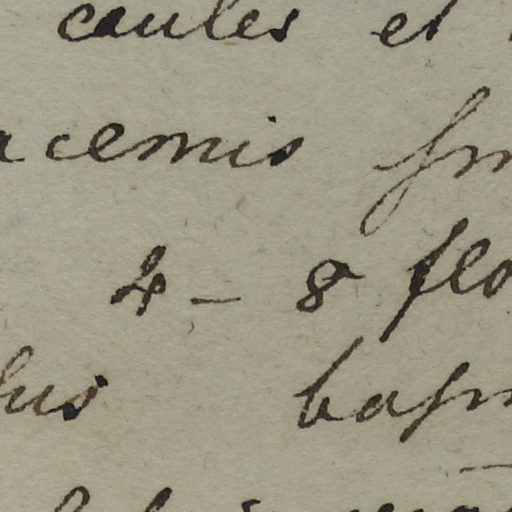 caules et
acemis
4 – 8 flo
lus bas